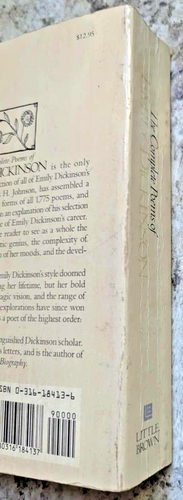 $12.95
plete Poems of
ICKINSON is the only
ection of all of Emily Dickinson's
H. Johnson, has assembled a
forms of all 1,775 poems, and
an explanation of his selection
e of Emily Dickinson's career.
reader to see as a whole the
tic genius, the complexity of
of her moods, and the devel-
mily Dickinson's style doomed
ng her lifetime, but her bold
agic vision, and the range of
explorations have since won
s a poet of the highest order.
nguished Dickinson scholar.
s letters, and is the author of
Biography.
ISBN 0-316-18413-6
90000
0316184137
The Complete Poems of
LITTLE,
BROWN